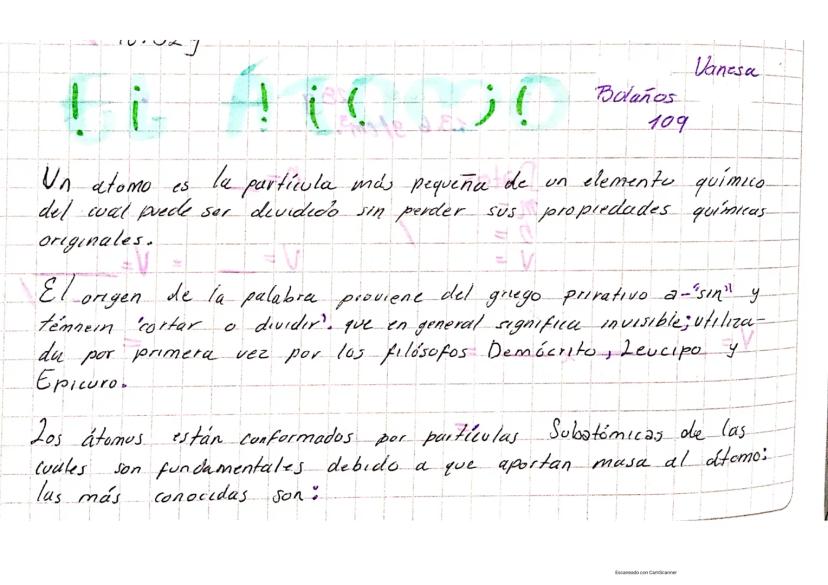 Vanesa
Bolaños
109
El Átomo
Un atomo es la partícula más pequeña de un elemento químico
del cual puede ser dividido sin perder sus propiedades químicas
originales.
El origen de la palabra proviene del griego privativo a-"sin" y
témnein 'cortar o dividir'. que en general significa invisible; utiliza-
da por primera vez por los filósofos Demócrito, Leucipo y
Epicuro.
Los átomos están conformados por partículas Subatómicas de las
cuales son fundamentales debido a que aportan masa al átomo:
las más conocidas son:
Escaneado con CamScanner